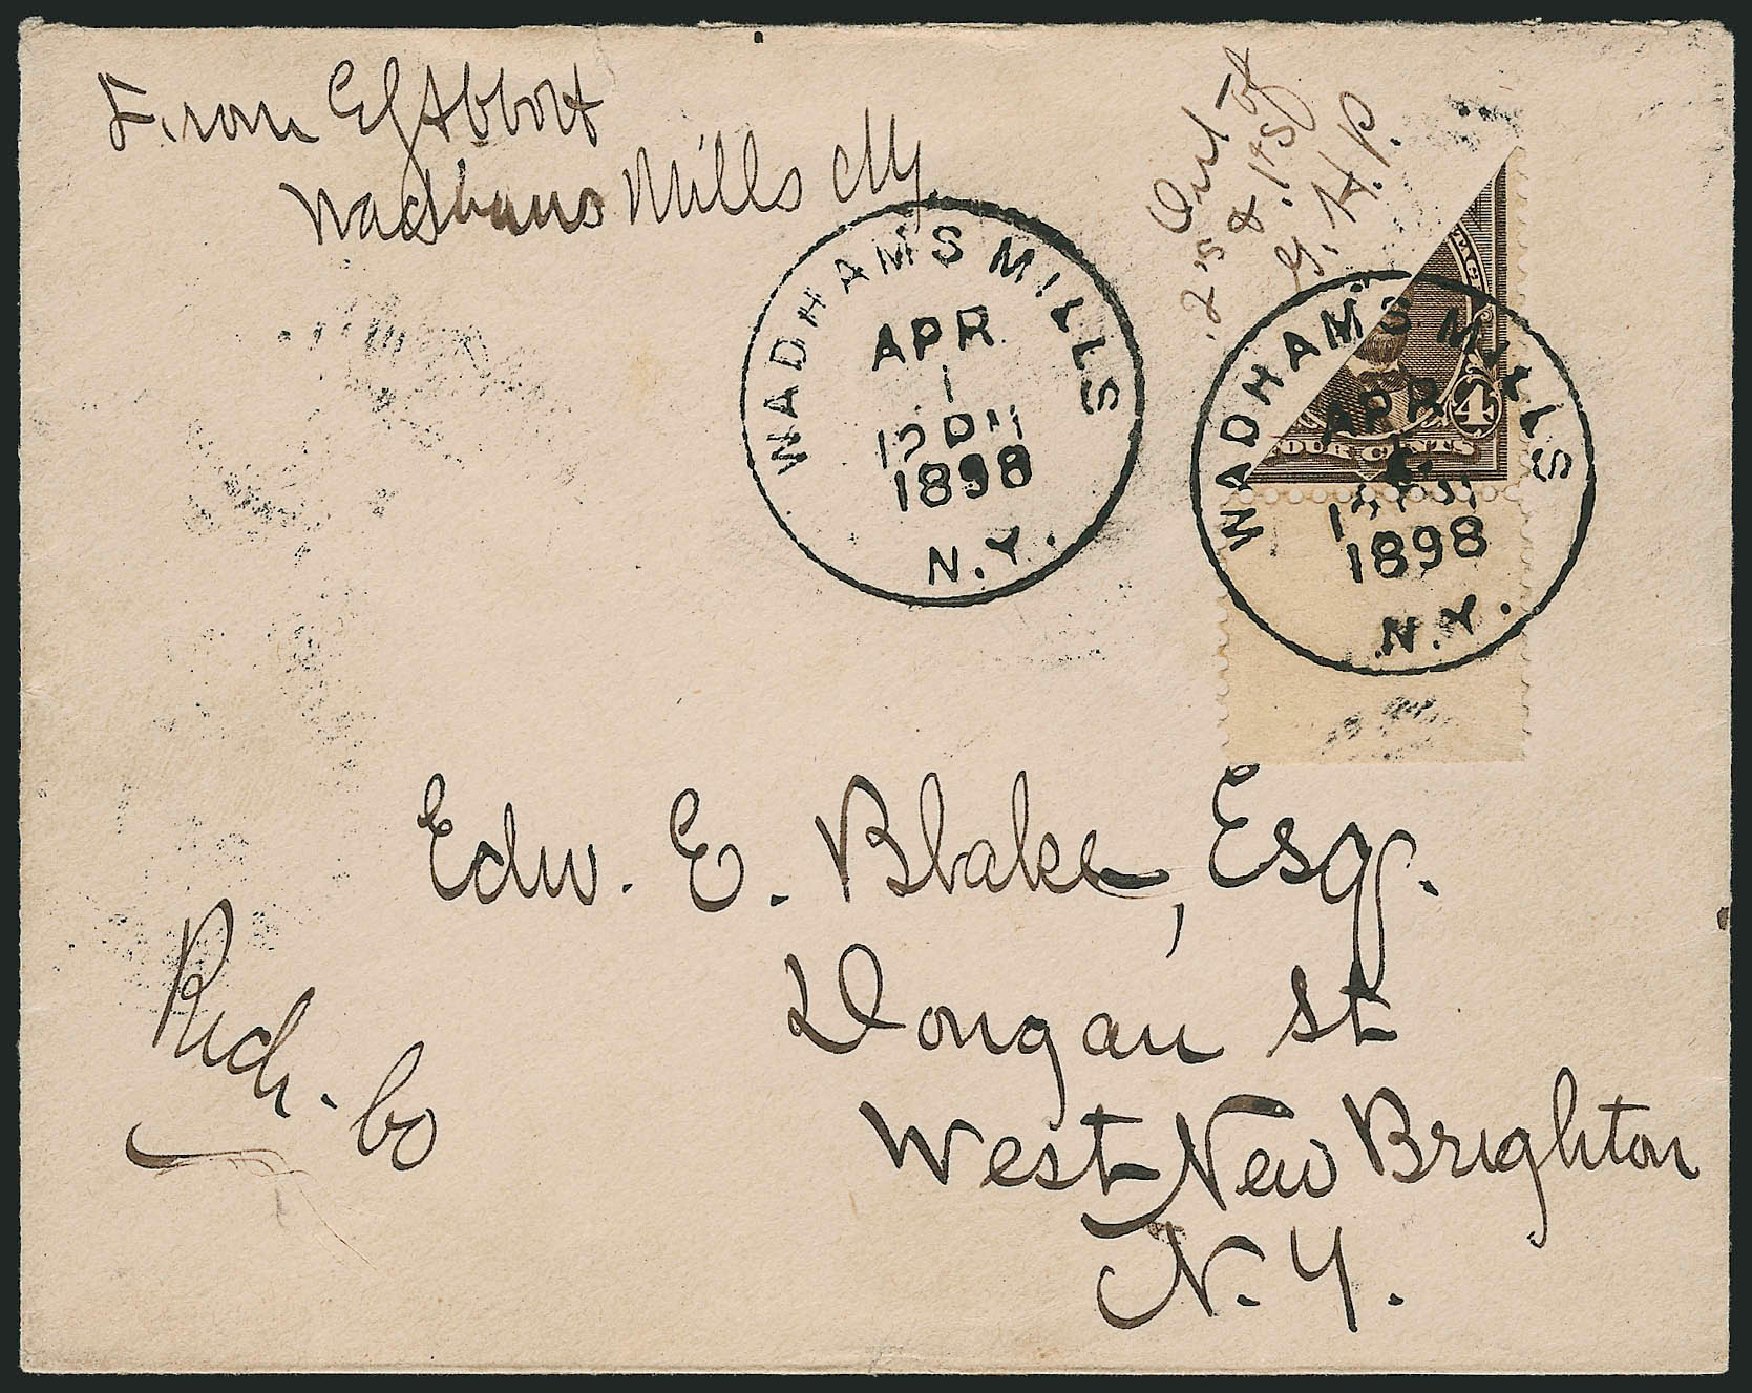 From E G Abbott
Wadhams Mills N.Y.
Out of
2s & 1s
G. H. P.
WADHAMS MILLS
APR
1
12 PM
1898
N.Y.
WADHAMS MILLS
APR
1
1898
N.Y.
4
OUR CENTS
Edw. E. Blake, Esq.
Dongan St
West New Brighton
N.Y.
Rich. Co